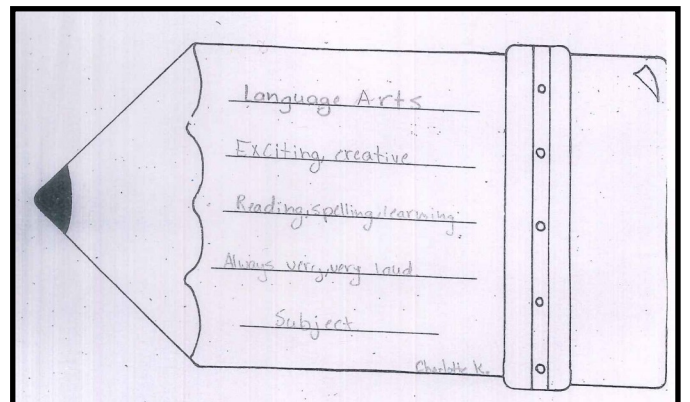 Language Arts
Exciting, creative
Reading, spelling, learning
Always very, very loud
Subject
Charlotte K.